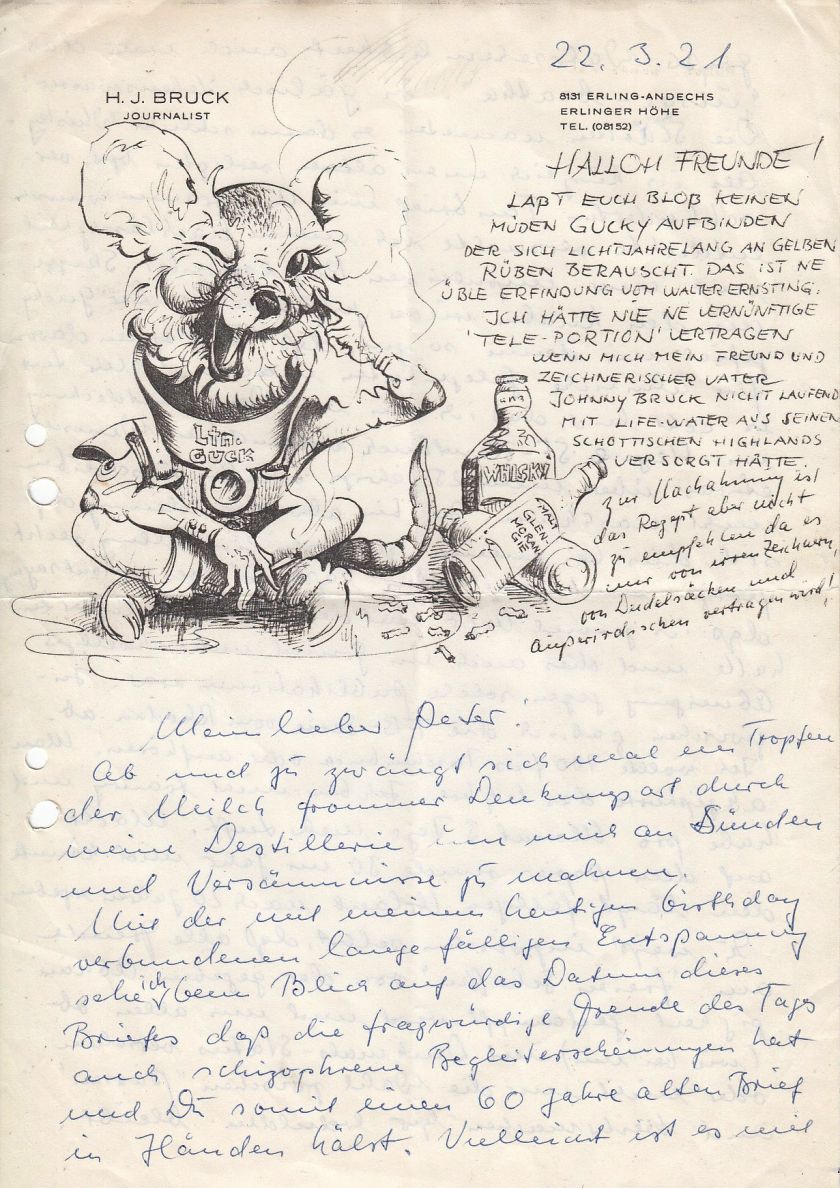 22. 3. 21
H. J. BRUCK
JOURNALIST
8131 ERLING-ANDECHS
ERLINGER HÖHE
TEL. (08152)
HALLOH FREUNDE!
LAßT EUCH BLOß KEINEN
MÜDEN GUCKY AUFBINDEN
DER SICH LICHTJAHRELANG AN GELBEN
RÜBEN BERAUSCHT. DAS IST NE
ÜBLE ERFINDUNG VOM WALTER ERNSTING.
ICH HÄTTE NIE NE VERNÜNFTIGE
'TELE-PORTION' VERTRAGEN
WENN MICH MEIN FREUND UND
ZEICHNERISCHER VATER
JOHNNY BRUCK NICHT LAUFEND
MIT LIFE-WATER AUS SEINEN
SCHOTTISCHEN HIGHLANDS
VERSORGT HÄTTE.
zur Nachahmung ist
das Rezept aber nicht
zu empfehlen da es
nur von irren Zeichnern,
von Dudelsäcken und
außerirdischen vertragen wird!
Ltn.
GUCK
WHISKY
MALT
GLEN-
MORAN
GIE
Mein lieber Peter!
Ab und zu zwängt sich mal ein Tropfen
der Milch frommer Denkungsart durch
meine Destillerie um mich an Sünden
und Versäumnisse zu mahnen.
Mit der, mit meinem heutigen birthday
verbundenen lange fälligen Entspannung
sehe ich beim Blick auf das Datum dieses
Briefes daß die fragwürdige Freude des Tages
auch schizophrene Begleiterscheinungen hat
und Du somit einen 60 Jahre alten Brief
in Händen hälst. Vielleicht ist es mit